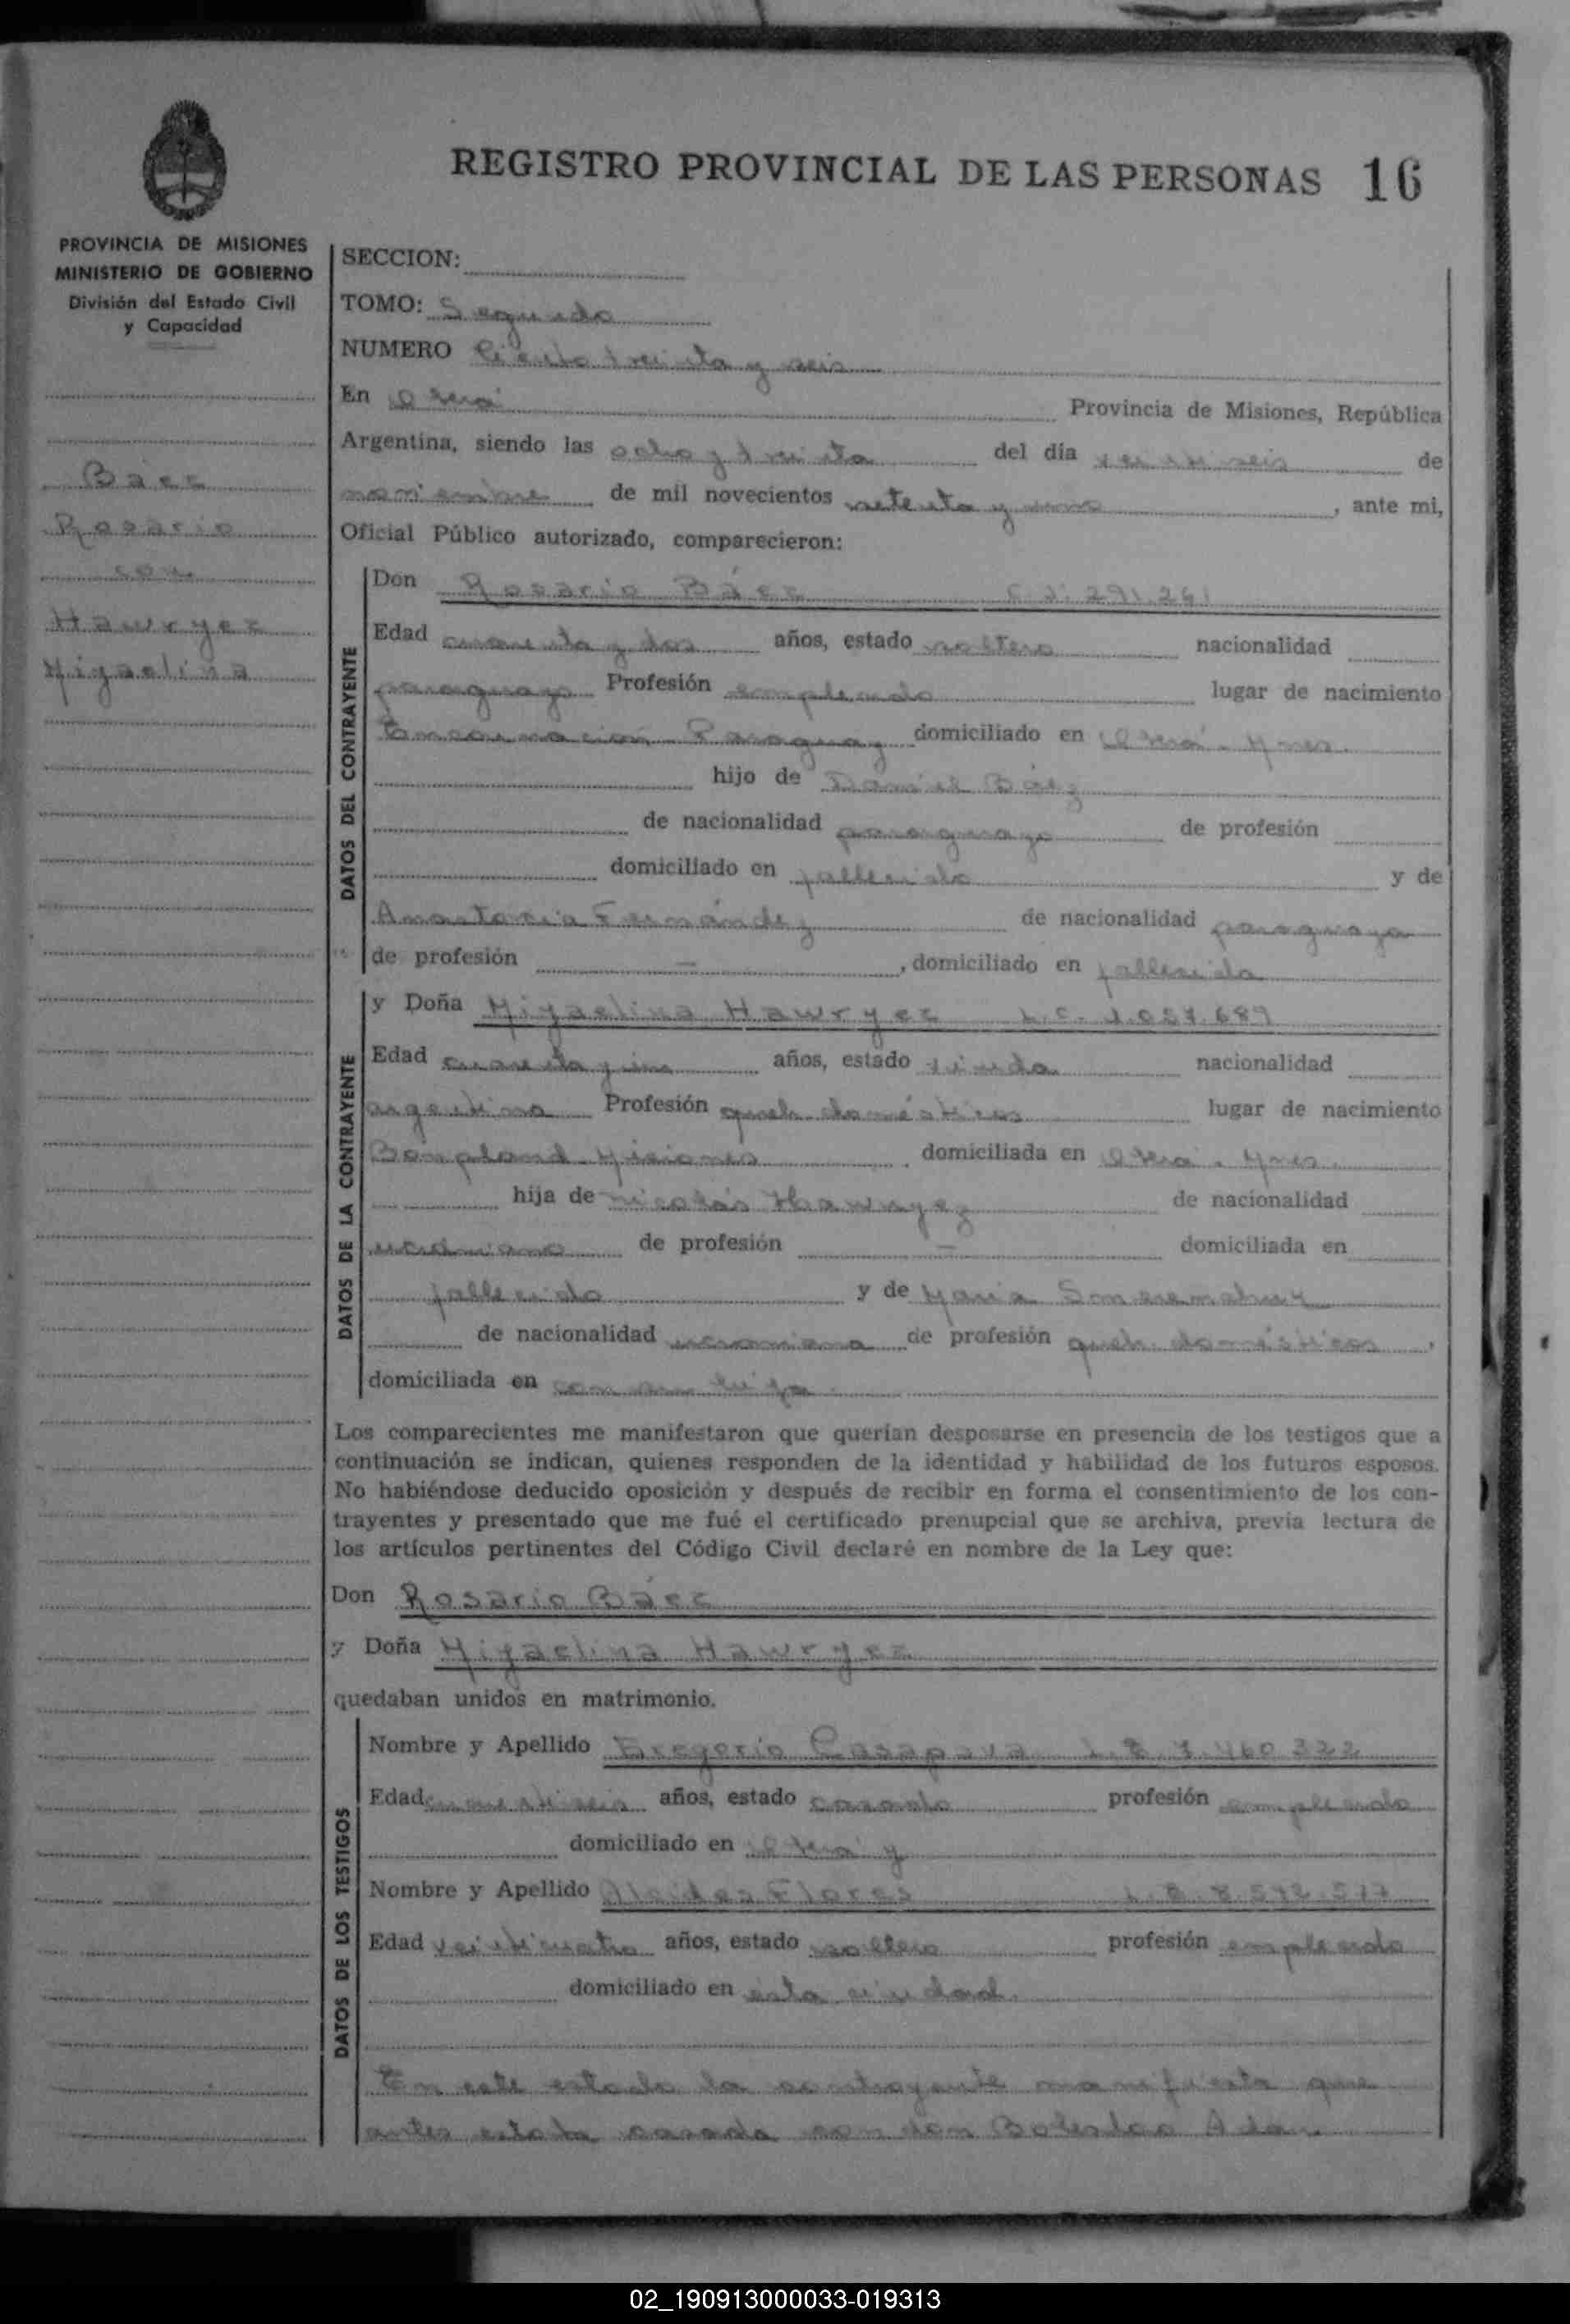 REGISTRO PROVINCIAL DE LAS PERSONAS 16
PROVINCIA DE MISIONES
MINISTERIO DE GOBIERNO
División del Estado Civil
y Capacidad
Báez
Rosario
con
Hawryez
Migaelina
SECCION:
TOMO: Segundo
NUMERO Ciento treinta y seis
En Oberá Provincia de Misiones, República
Argentina, siendo las ocho y treinta del día veintiseis de
noviembre de mil novecientos setenta y uno, ante mi,
Oficial Público autorizado, comparecieron:
DATOS DEL CONTRAYENTE
Don Rosario Báez C.I. 291.261
Edad cuarenta y dos años, estado soltero nacionalidad
paraguayo Profesión empleado lugar de nacimiento
Encarnación Paraguay domiciliado en Oberá - Mnes.
hijo de Daniel Báez
de nacionalidad paraguayo de profesión
domiciliado en fallecido y de
Anastacia Fernández de nacionalidad paraguaya
de profesión —, domiciliado en fallecida
DATOS DE LA CONTRAYENTE
y Doña Migaelina Hawryez L.C. 1.057.689
Edad cuarenta y uno años, estado viuda nacionalidad
argentina Profesión queh. domésticos lugar de nacimiento
Bonpland Misiones domiciliada en Oberá - Mnes.
hija de Nicolás Hawryez de nacionalidad
ucraniano de profesión — domiciliada en
fallecido y de María
de nacionalidad ucraniana de profesión queh. domésticos,
domiciliada en con su hija.
Los comparecientes me manifestaron que querían desposarse en presencia de los testigos que a
continuación se indican, quienes responden de la identidad y habilidad de los futuros esposos.
No habiéndose deducido oposición y después de recibir en forma el consentimiento de los con-
trayentes y presentado que me fué el certificado prenupcial que se archiva, previa lectura de
los artículos pertinentes del Código Civil declaré en nombre de la Ley que:
Don Rosario Báez
y Doña Migaelina Hawryez
quedaban unidos en matrimonio.
DATOS DE LOS TESTIGOS
Nombre y Apellido Gregorio Casapava L.E. 7.460.322
Edad años, estado casado profesión empleado
domiciliado en Oberá y
Nombre y Apellido Alcides Flores L.E. 8.542.577
Edad veinticuatro años, estado soltero profesión empleado
domiciliado en esta ciudad.
En este estado la contrayente manifiesta que
antes estaba casada con don Boleslao Adam
02_190913000033-019313